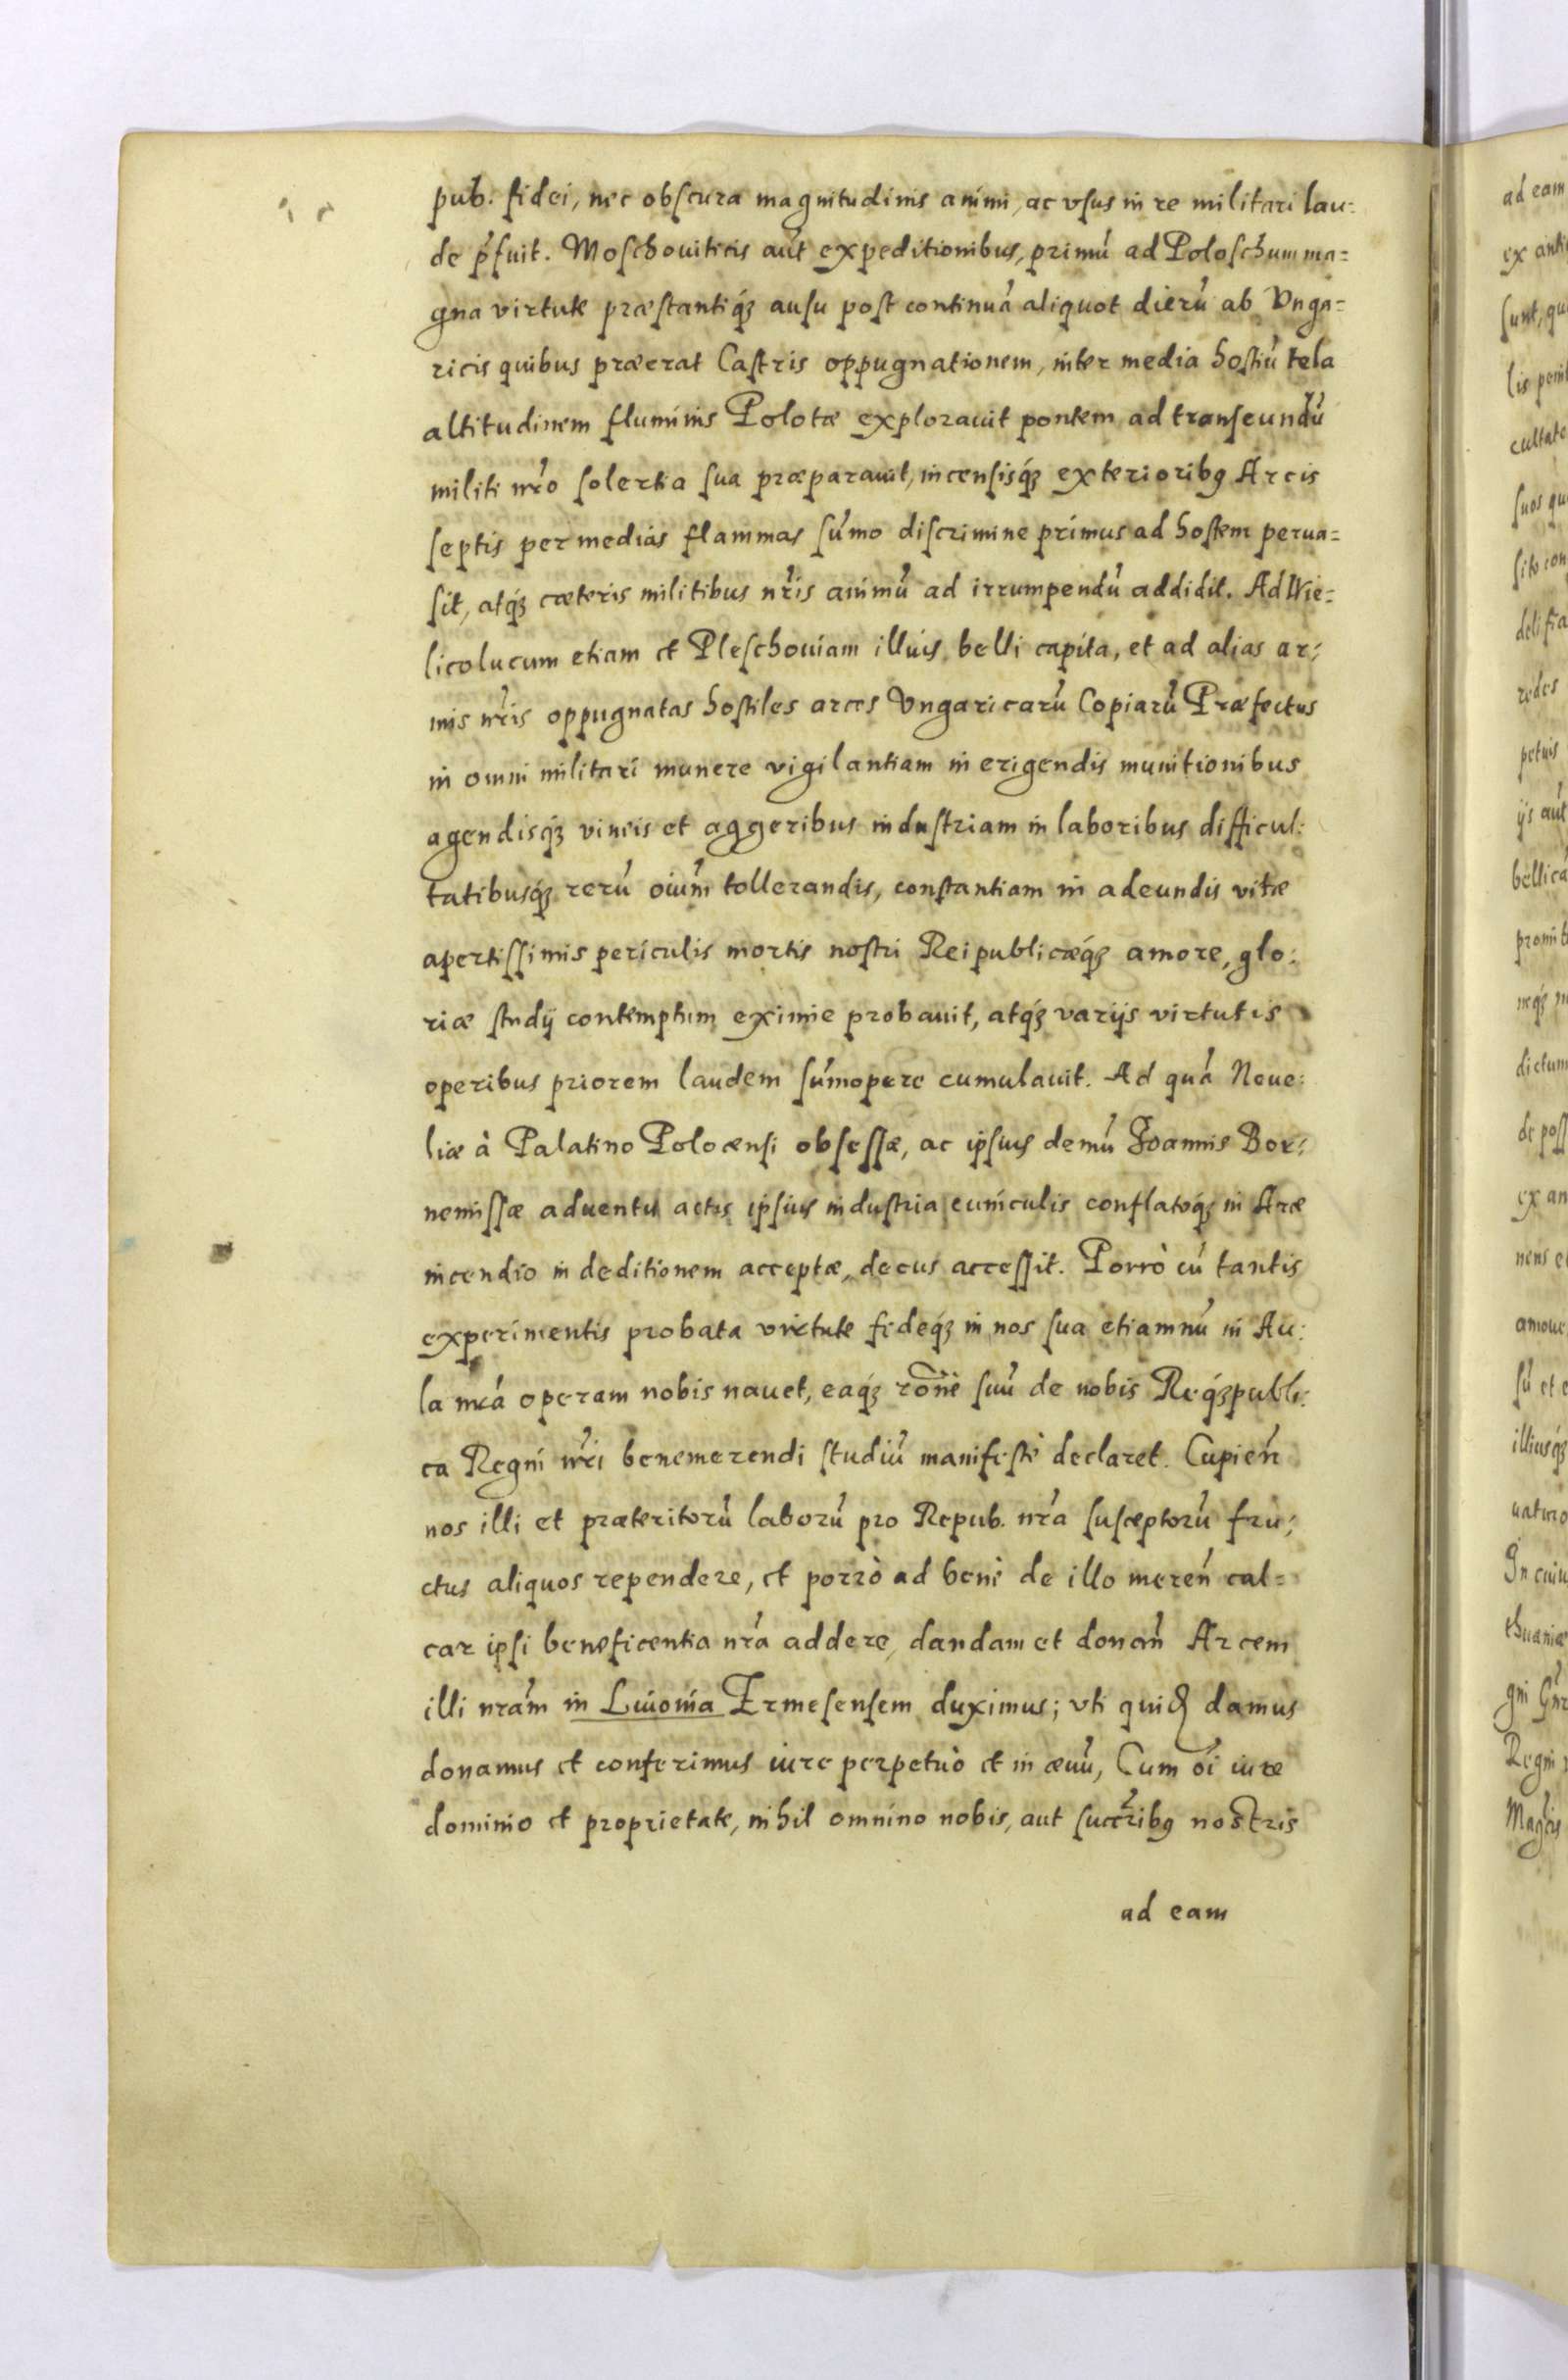 pub. fidei, nec obscura magnitudinis animi, ac vsus in re militari lau:
de p̃fuit. Moschouiticis aut̃ expeditionibus, primũ ad Poloschum ma=
gna virtute præstantiq́ꝫ ausu post continuã aliquot dierũ ab Vnga=
ricis quibus præerat Castris oppugnationem, inter media hostiũ tela
altitudinem fluminis Polotæ explorauit pontem ad transeundũ
militi nr̃o solertia sua præparauit, incensisq́ꝫ exterioribꝰ Arcis
septis per medias flammas sum̃o discrimine primus ad hostem perua=
sit, atq́ꝫ cæteris militibus nr̃is animũ ad irrumpendũ addidit. Ad Wie=
licolucum etiam et Pleschouiam illuis belli capita, et ad alias ar:
mis nr̃is oppugnatas hostiles arces Vngaricarũ Copiarũ Præfectus
in omni militari munere vigilantiam in erigendis munitionibus
agendisq́ꝫ vineis et aggeribus industriam in laboribus difficul:
tatibusq́ꝫ rerũ oiũm tollerandis, constantiam in adeundis vitæ
apertissimis periculis mortis nostri Reipublicæq́ꝫ amore, glo:
riæ studij contemptum eximie probauit, atq́ꝫ varijs virtutis
operibus priorem laudem sum̃opere cumulauit. Ad quã Neue:
liæ à Palatino Polocensi obsessæ, ac ipsius demũ Joannis Bor:
nemissæ aduentu actis ipsius industria cuniculis conflatoq́ꝫ in Arce
incendio in deditionem acceptæ, decus accessit. Porrò cũ tantis
experimentis probata virtute fideq́ꝫ in nos sua etiamnũ in Au:
la nr̃a operam nobis nauet, eaq́ꝫ rõne suũ de nobis Req́ꝫpubli:
ca Regni nr̃i benemerendi studiũ manifestè declaret. Cupieñ
nos illi et præteritorũ laborũ pro Repub. nr̃a susceptorũ fru:
ctus aliquos rependere, et porrò ad benè de illo mereñ cal=
car ipsi beneficentia nr̃a addere, dandam et donañ Arcem
illi nr̃am in Liuonia Ermesensem duximus; vti quidẽ damus
donamus et conferimus iure perpetuò et in æuũ, Cum oĩ iure
dominio et proprietate, nihil omnino nobis, aut succr̃ibꝰ nostris
ad eam